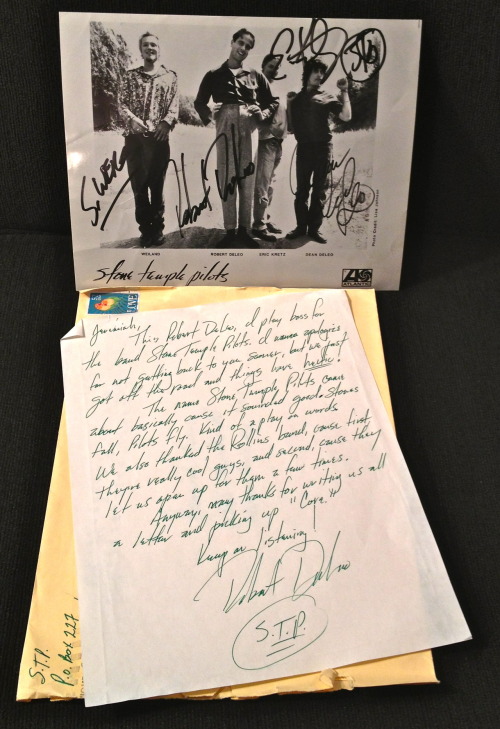 WEILAND ROBERT DELEO ERIC KRETZ DEAN DELEO
Stone Temple Pilots
ATLANTIC
LOVE
Jeremiah,
This, Robert DeLeo, I play bass for
the band Stone Temple Pilots. I wanna apologize
for not getting back to you sooner, but we just
got off the road and things have hectic.
The name Stone Temple Pilots came
about basically cause it sounded good. Stones
fall, Pilots fly. Kind of a play on words
We also thanked the Rollins band, cause first,
they're really cool guys, and second, cause they
let us open up for them a few times.
Anyway, many thanks for writing us all
a letter and picking up "Core."
Keep on listening
Robert DeLeo
S.T.P.
S.T.P.
P.O. Box 227